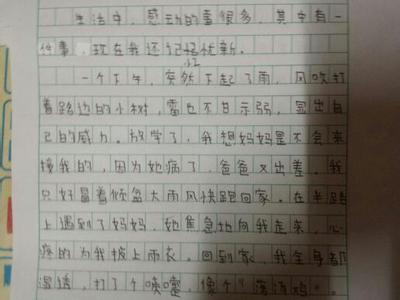 生活中，感动的事很多，其中有一
件事，现在我还记忆忧新。
一个下午，突然下起了雨，风吹打
着路边的小树，雷也不甘示弱，显出自
己的威力。放学了，我想妈妈是不会来
接我的，因为她病了，爸爸又出差。我
只好冒着倾盆大雨风快跑回家。在半路
上遇到了妈妈，她焦急地向我走来，心
疼的为我披上雨衣。回到家，我全身都
湿透，打了个喷嚏，像个“落汤鸡”。